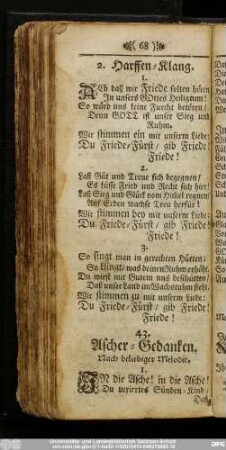 68
2. Harffen-Klang.
1.
ACh daß wir Friede solten hören
In unsers GOttes Heiligtum!
So würd uns keine Furcht betören!
Denn GOTT ist unser Sieg und
Ruhm.
Wir stimmen ein mit unserm Liede:
Du Friede-Fürst/ gib Friede!
Friede!
2.
Laß Güt und Treue sich begegnen/
Es küsse Fried und Recht sich hier/
Laß Sieg und Glück vom Himel regnen/
Auf Erden wachse Treu herfür!
Wir stimmen bey mit unserm Liede:
Du Friede-Fürst/ gib Friede!
Friede!
3.
So singt man in gerechten Hütten:
So klingt/ was deinen Ruhm erhöht.
Du wirst mit Gutem uns beschütten/
Daß unser Land im Wachsthum steht.
Wir stimmen zu mit unserm Liede:
Du Friede-Fürst/ gib Friede!
Friede!
43.
Ascher-Gedanken.
Nach beliebiger Melodie.
1.
IN die Asche! in die Asche!
Du verirrtes Sünden-Kind:
Daß